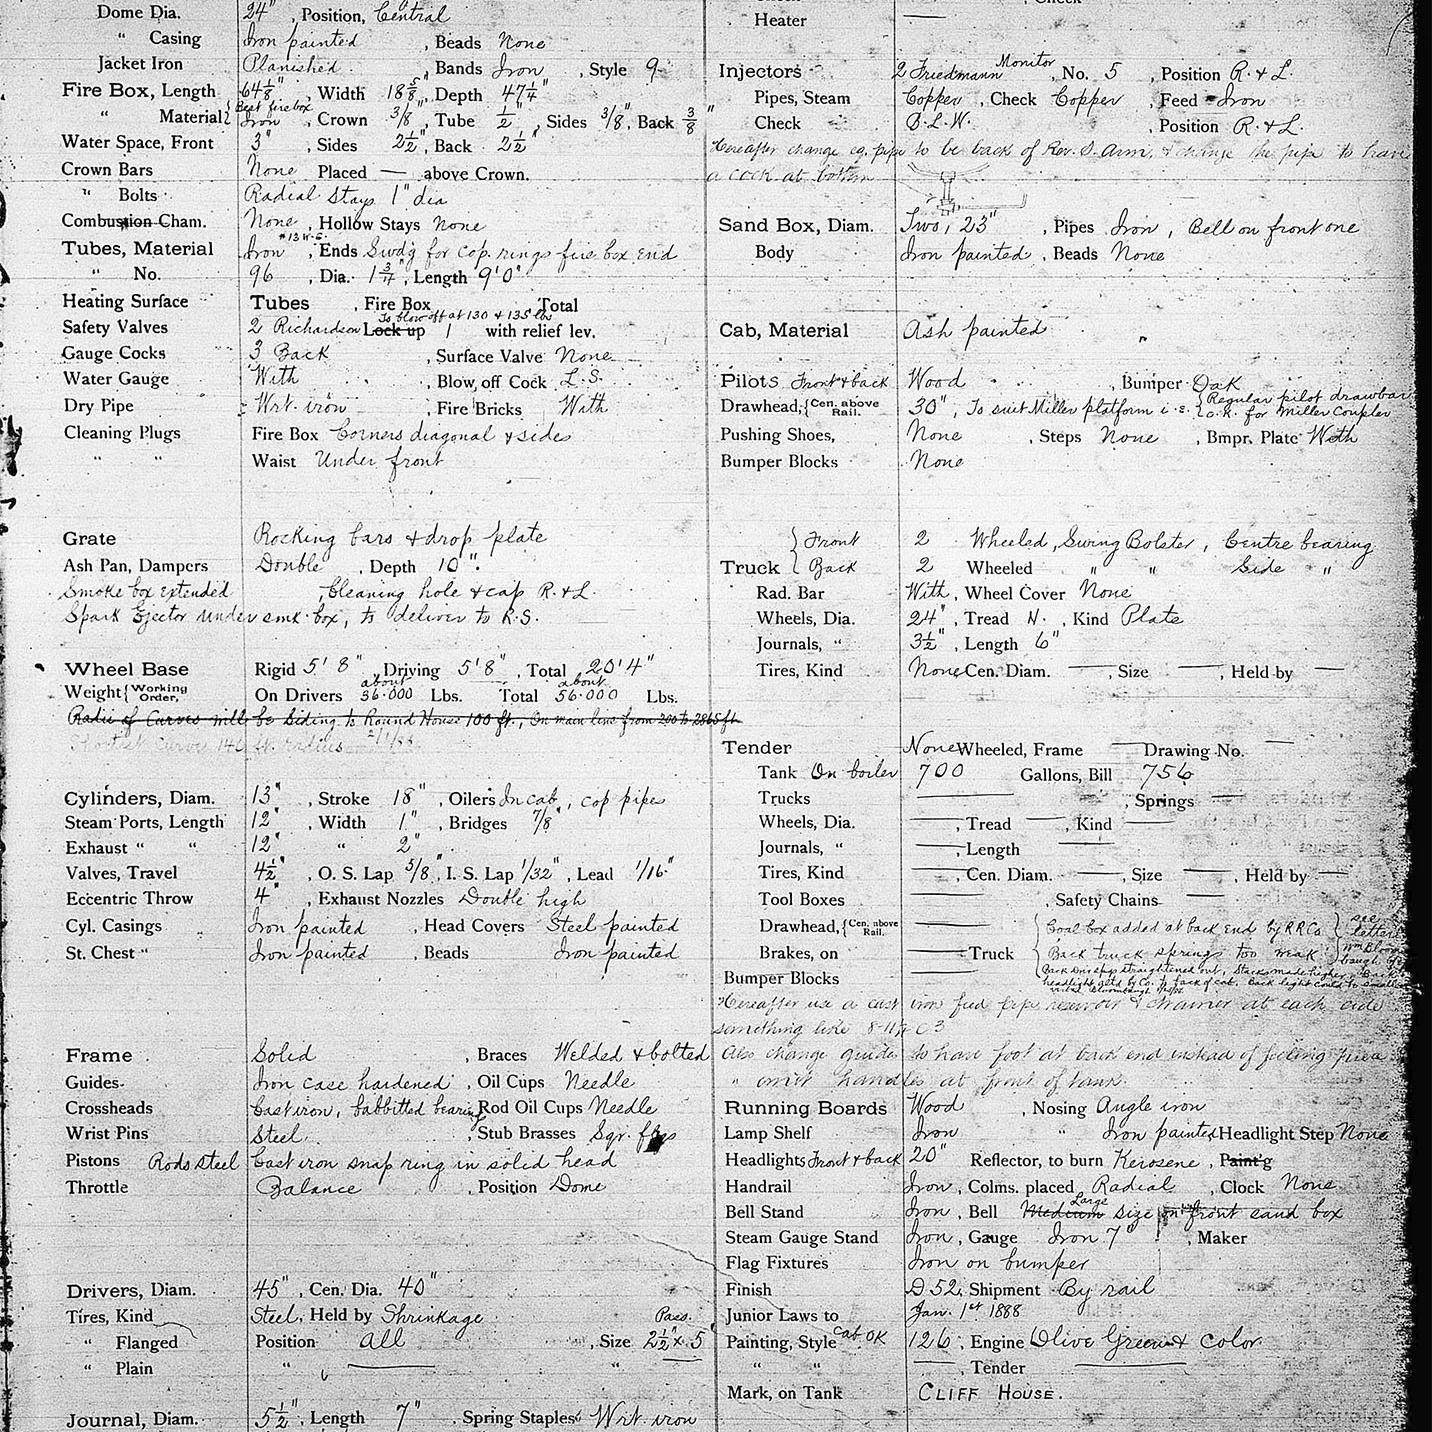 Dome Dia. 24", Position, Central
" Casing Iron painted, Beads None
Jacket Iron Planished, Bands Iron, Style 9
Fire Box, Length 64 1/8", Width 18 5/8", Depth 47 1/4"
" Material { Best fire box Iron, Crown 3/8", Tube 1/2", Sides 3/8", Back 3/8"
Water Space, Front 3", Sides 2 1/2", Back 2 1/2"
Crown Bars None Placed — above Crown.
" Bolts Radial Stays 1" dia
Combustion Cham. None, Hollow Stays None
Tubes, Material Iron #13 W.G., Ends Swdg for cop. rings fire box end
" No. 96, Dia. 1 3/4", Length 9'0"
Heating Surface Tubes, Fire Box Total
To blow off at 130 & 135 lbs
Safety Valves 2 Richardson Lock up 1 with relief lev.
Gauge Cocks 3 Back, Surface Valve None
Water Gauge With, Blow off Cock L.S.
Dry Pipe Wrt. iron, Fire Bricks With
Cleaning Plugs Fire Box Corners diagonal & sides
" " Waist Under front
Grate Rocking bars & drop plate
Ash Pan, Dampers Double, Depth 10".
Smoke box extended, Cleaning hole & cap R. & L.
Spark Ejector under smk. box, to deliver to R.S.
Wheel Base Rigid 5'8", Driving 5'8", Total 20'4"
Weight { Working Order, On Drivers about 36.000 Lbs. Total about 56.000 Lbs.
Radii of Curves will be Siding to Round House 100 ft., On main line from 200 to 2865 ft
Shortest Curve 146 ft. radius
Cylinders, Diam. 13", Stroke 18", Oilers In cab, cop pipes
Steam Ports, Length 12", Width 1", Bridges 7/8"
Exhaust " " 12" " 2"
Valves, Travel 4 1/2", O. S. Lap 5/8", I. S. Lap 1/32", Lead 1/16"
Eccentric Throw 4", Exhaust Nozzles Double high
Cyl. Casings Iron painted, Head Covers Steel painted
St. Chest " Iron painted, Beads Iron painted
Frame Solid, Braces Welded & bolted
Guides Iron case hardened, Oil Cups Needle
Crossheads Cast iron, babbitted bearing Rod Oil Cups Needle
Wrist Pins Steel, Stub Brasses Sqr.
Pistons Rods steel Cast iron snap ring in solid head
Throttle Balance, Position Dome
Drivers, Diam. 45", Cen. Dia. 40"
Tires, Kind Steel, Held by Shrinkage
" Flanged Position All, Size Pass. 2 1/2" x 5"
" Plain " "
Journal, Diam. 5 1/2", Length 7", Spring Staples Wrt iron
Check
Heater —
Injectors 2 Friedmann Monitor, No. 5, Position R. & L.
Pipes, Steam Copper, Check Copper, Feed Iron
Check B.L.W., Position R. & L.
Hereafter change eq. pipe to be back of Rev. S. Arm, & change the pipe to have
a cock at bottom
Sand Box, Diam. Two, 23", Pipes Iron, Bell on front one
Body Iron painted, Beads None
Cab, Material Ash painted
Pilots Front & back Wood, Bumper Oak
Drawhead, { Cen. above Rail. 30", To suit Miller platform i.e. { Regular pilot drawbar O.K. for Miller Coupler
Pushing Shoes, None, Steps None, Bmpr. Plate With
Bumper Blocks None
Truck { Front 2 Wheeled, Swing Bolster, Centre bearing
Back 2 Wheeled " " Side "
Rad. Bar With, Wheel Cover None
Wheels, Dia. 24", Tread N., Kind Plate
Journals, " 3 1/2", Length 6"
Tires, Kind None Cen. Diam. —, Size —, Held by —
Tender None Wheeled, Frame — Drawing No. —
Tank On boiler 700 Gallons, Bill 756
Trucks —, Springs —
Wheels, Dia. —, Tread —, Kind —
Journals, " —, Length —
Tires, Kind —, Cen. Diam. —, Size —, Held by —
Tool Boxes —, Safety Chains
Drawhead, { Cen. above Rail. — { Coal box added at back end by R.R. Co. } see letter
Brakes, on — Truck Back truck springs too weak
Bumper Blocks — Back Driv. spgs straightened out, Stack made higher, Back
headlight put by Co. to back of cab. Back light could be smaller
Hereafter use a cast iron feed pipe reservoir & strainer at each side
something like 8-11 1/2 C 3
Also change guides to have foot at back end instead of
" omit handles at front of tank.
Running Boards Wood, Nosing Angle iron
Lamp Shelf Iron " Iron painted Headlight Step None
Headlights Front & back 20" Reflector, to burn Kerosene, Paint'g
Handrail Iron, Colms. placed Radial, Clock None
Bell Stand Iron, Bell Medium Large size on front sand box
Steam Gauge Stand Iron, Gauge Iron 7", Maker
Flag Fixtures Iron on bumper
Finish D 52, Shipment By rail
Junior Laws to Jan. 1st 1888
Painting, Style Cab OK 126, Engine Olive Green & Color
" " —, Tender —
Mark, on Tank CLIFF HOUSE.